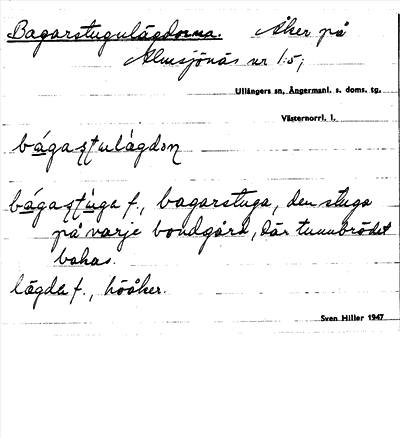 Bagarstugulägdorna. Åker på
Almsjönäs nr 1:5;
Ullångers sn, Ångermanl. s. doms. tg.
Västernorrl. l.
bágaștulägdọn
bágaștuga f., bagarstuga, den stuga
på varje bondgård, där tunnbrödet
bakas.
lägda f., höåker.
Sven Hiller 1947